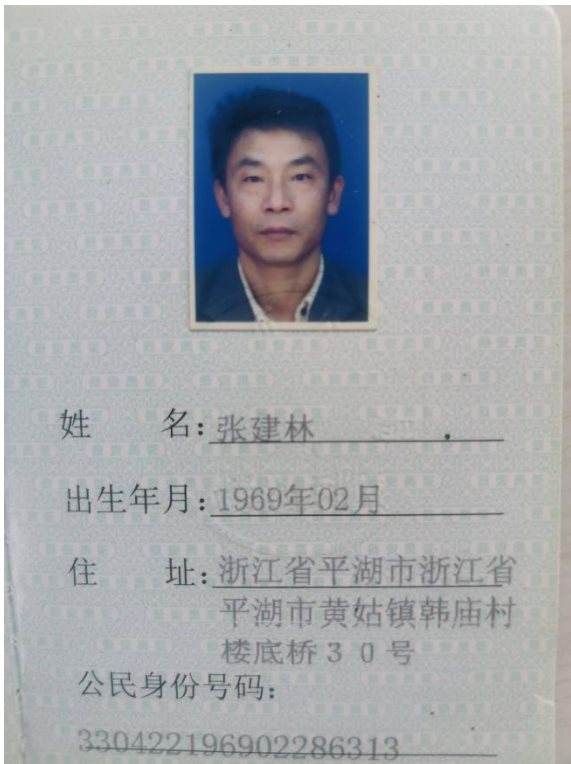 姓 名：张建林
出生年月：1969年02月
住 址：浙江省平湖市浙江省
平湖市黄姑镇韩庙村
楼底桥30号
公民身份号码：
330422196902286313